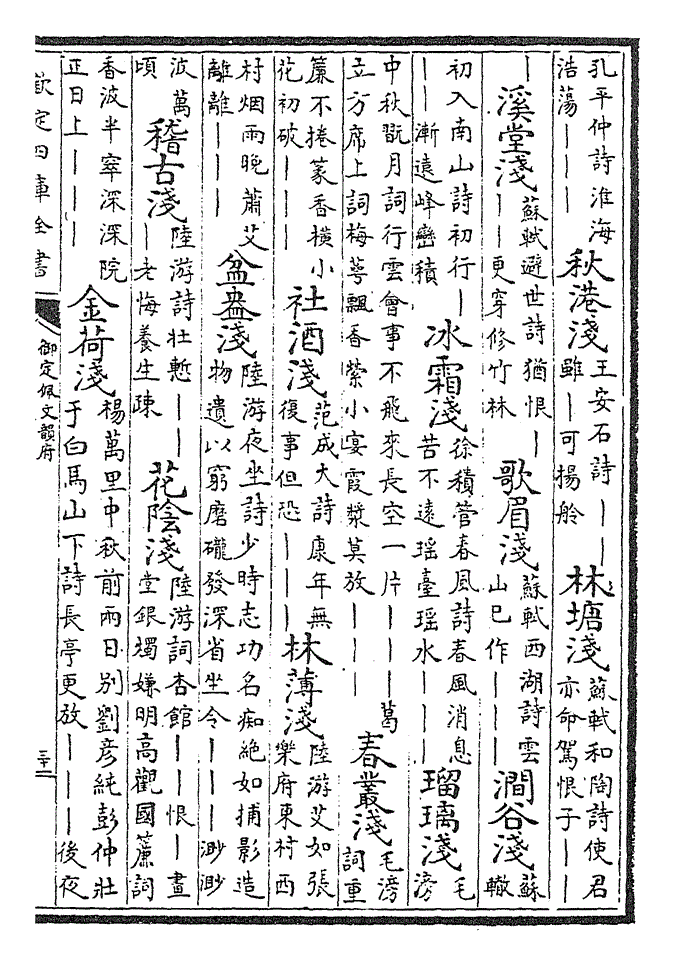 孔平仲詩淮海
浩蕩｜｜｜
秋港淺
王安石詩｜｜
雖｜可揚舲
林塘淺
蘇軾和陶詩使君
亦命駕恨子｜｜
｜
溪堂淺
蘇軾避世詩猶恨｜
｜｜更穿修竹林
歌眉淺
蘇軾西湖詩雲
山已作｜｜｜
澗谷淺
蘇
轍
初入南山詩初行｜
｜｜漸遠峰巒積
冰霜淺
徐積管春風詩春風消息
苦不遠瑶臺瑶水｜｜｜
瑠璃淺
毛
滂
中秋翫月詞行雲會事不飛來長空一片｜｜｜葛
立方席上詞梅蕚飄香縈小宴霞漿莫放｜｜｜
春叢淺
毛滂
詞重
簾不捲篆香横小
花初破｜｜｜
社酒淺
范成大詩康年無
復事但恐｜｜｜
林薄淺
陸游艾如張
樂府東村西
村烟雨晚蕭艾
離離｜｜｜
盆盎淺
陸游夜坐詩少時志功名痴絶如捕影造
物遺以窮磨礲發深省坐令｜｜｜渺渺
波萬
頃
稽古淺
陸游詩壯慙｜｜
｜老悔養生疎
花陰淺
陸游詞杏館｜｜｜恨｜畫
堂銀燭嫌明高觀國簾詞
香波半窣深深院
正日上｜｜｜
金荷淺
楊萬里中秋前兩日别劉彦純彭仲壯
于白馬山下詩長亭更放｜｜｜後夜
欽定四庫全書
御定佩文韻府
三十二